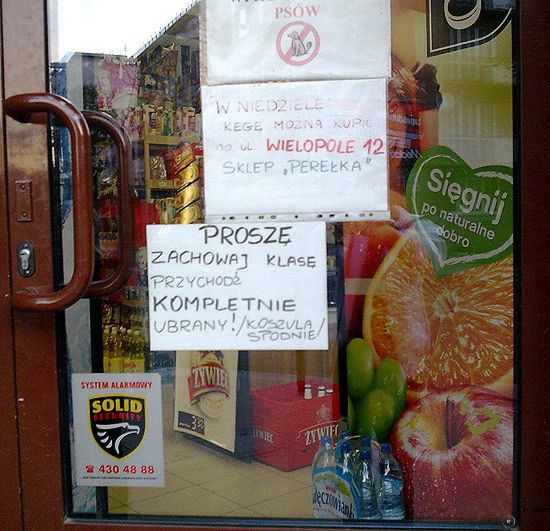 PSÓW
W NIEDZIELE
KEGĘ MOŻNA KUPIĆ
na ul. WIELOPOLE 12
SKLEP „PEREŁKA”
PROSZĘ
ZACHOWAJ KLASĘ
PRZYCHODŹ
KOMPLĘTNIE
UBRANY! /KOSZULA
SPODNIE/
Sięgnij
po naturalne
dobro
ŻYWIEC
ŻYWIEC
ŻYWIEC
SYSTEM ALARMOWY
SOLID
SECURITY
☎ 430 48 88